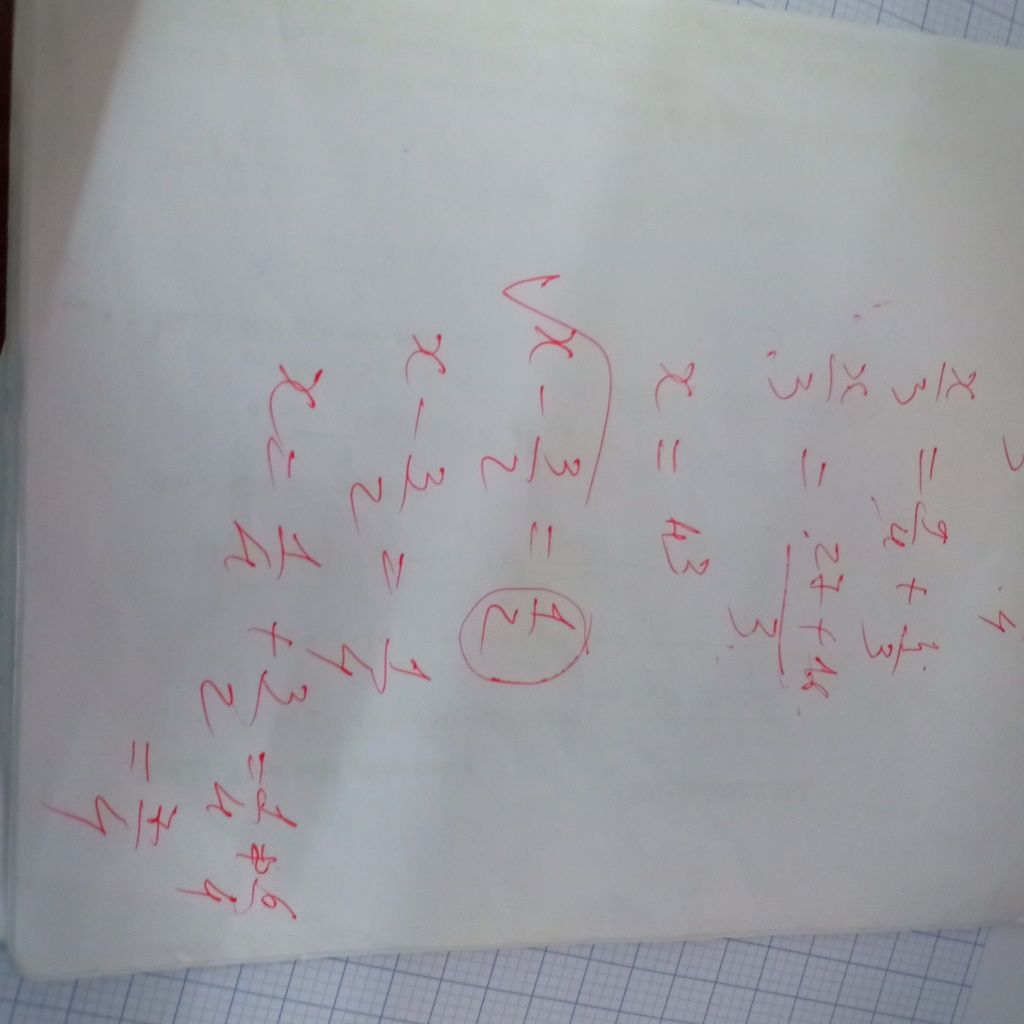 x/3 = 9/4 + 4/3
x/3 = (27 + 16)/3
x = 43
√(x - 3/2) = 1/2
x - 3/2 = 1/4
x = 1/4 + 3/2 = 1/4 + 6/4
= 7/4